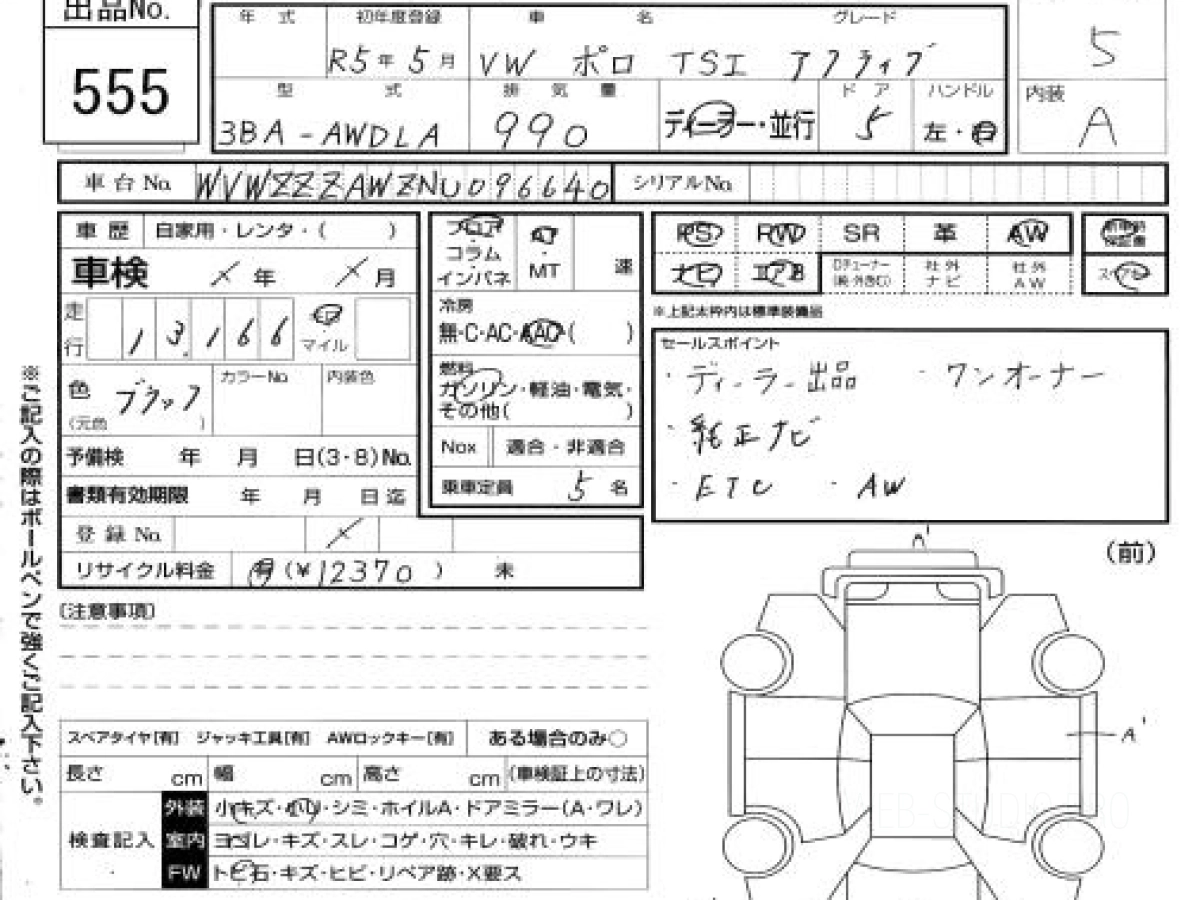 出品No.
555
年 式 初年度登録 車 名 グレード
R5年 5月 VW ポロ TSI アクティブ 5
型 式 排 気 量 ド ア ハンドル 内装
3BA-AWDLA 990 ディーラー・並行 5 左・右 A
車台No. WVWZZZAWZNU096640 シリアルNo.
車 歴 自家用・レンタ・( )
車検 ／ 年 ／ 月
走行 13,166 マイル
色 ブラック カラーNo. 内装色
(元色 )
予備検 年 月 日(3・8)No.
書類有効期限 年 月 日迄
登 録 No. ／
リサイクル料金 有 (¥12370 ) 未
フロア AT
コラム
インパネ MT 速
冷房
無・C・AC・AAC・( )
燃料
ガソリン・軽油・電気・
その他( )
Nox 適合・非適合
乗車定員 5 名
PS PW SR 革 AW 新車時保証書
ナビ エアB 社外ナビ 社外AW スペアキー
※上記太枠内は標準装備品
セールスポイント
・ディーラー出品 ・ワンオーナー
・純正ナビ
・ETC ・AW
※ご記入の際はボールペンで強くご記入下さい。
〔注意事項〕
A' (前)
A'
スペアタイヤ[有] ジャッキ工具[有] AWロックキー[有] ある場合のみ○
長さ cm 幅 cm 高さ cm (車検証上の寸法)
検査記入
外装 小キズ・凹・シミ・ホイルA・ドアミラー(A・ワレ)
室内 ヨゴレ・キズ・スレ・コゲ・穴・キレ・破れ・ウキ
FW トビ石・キズ・ヒビ・リペア跡・X要ス